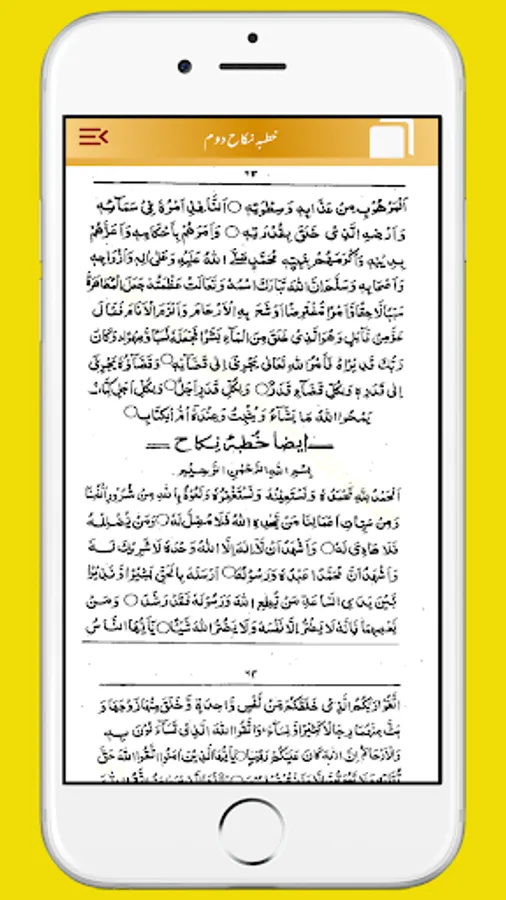 خطبہ نکاح دوم
٦٣
الْمَرْهُوْبِ مِنْ عَذَابِهٖ وَسَطْوَتِهٖ ○ اَلنَّافِذِ اَمْرُهٗ فِیْ سَمَآئِهٖ
وَاَرْضِهٖ الَّذِیْ خَلَقَ بِقُدْرَتِهٖ ○ وَاَمَرَهُمْ بِاَحْكَامِهٖ وَاَعَزَّهُمْ
بِدِیْنِهٖ وَاَكْرَمَهُمْ بِنَبِیِّهٖ مُحَمَّدٍ صَلَّی اللهُ عَلَیْهِ وَعَلٰی اٰلِهٖ وَاَزْوَاجِهٖ
وَاَصْحَابِهٖ وَسَلَّمَ اِنَّ اللهَ تَبَارَكَ اسْمُهٗ وَتَعَالَتْ عَظَمَتُهٗ جَعَلَ الْمُصَاهَرَةَ
سَبَبًا لَاحِقًا وَاَمْرًا مُّفْتَرِضًا اَوْشَجَ بِهِ الْاَرْحَامَ وَاَلْزَمَ الْاَنَامَ فَقَالَ
عَزَّ مِنْ قَآئِلٍ وَهُوَ الَّذِیْ خَلَقَ مِنَ الْمَآءِ بَشَرًا فَجَعَلَهٗ نَسَبًا وَّصِهْرًا وَكَانَ
رَبُّكَ قَدِیْرًا ○ فَاَمْرُ اللهِ تَعَالٰی یَجْرِیْ اِلٰی قَضَآئِهٖ ○ وَقَضَآؤُهٗ یَجْرِیْ
اِلٰی قَدَرِهٖ وَلِكُلِّ قَضَآءٍ قَدَرٌ ○ وَلِكُلِّ قَدَرٍ اَجَلٌ ○ وَلِكُلِّ اَجَلٍ كِتَابٌ
یَمْحُوا اللهُ مَا یَشَآءُ وَیُثْبِتُ وَعِنْدَهٗ اُمُّ الْكِتَابِ ○
ایضاً خُطبۂ نِکاح
بِسْمِ اللهِ الرَّحْمٰنِ الرَّحِیْمِ
اَلْحَمْدُ لِلّٰهِ نَحْمَدُهٗ وَنَسْتَعِیْنُهٗ وَنَسْتَغْفِرُهٗ وَنَعُوْذُ بِاللهِ مِنْ شُرُوْرِ اَنْفُسِنَا
وَمِنْ سَیِّاٰتِ اَعْمَالِنَا مَنْ یَّهْدِهِ اللهُ فَلَا مُضِلَّ لَهٗ ○ وَمَنْ یُّضْلِلْهُ
فَلَا هَادِیَ لَهٗ ○ وَاَشْهَدُ اَنْ لَّآ اِلٰهَ اِلَّا اللهُ وَحْدَهٗ لَا شَرِیْكَ لَهٗ
وَاَشْهَدُ اَنَّ مُحَمَّدًا عَبْدُهٗ وَرَسُوْلُهٗ ○ اَرْسَلَهٗ بِالْحَقِّ بَشِیْرًا وَّنَذِیْرًا
بَیْنَ یَدَیِ السَّاعَةِ مَنْ یُّطِعِ اللهَ وَرَسُوْلَهٗ فَقَدْ رَشَدَ ○ وَمَنْ
یَّعْصِهِمَا فَاِنَّهٗ لَا یَضُرُّ اِلَّا نَفْسَهٗ وَلَا یَضُرُّ اللهَ شَیْئًا ○ یٰۤاَیُّهَا النَّاسُ
٦٣
اتَّقُوْا رَبَّكُمُ الَّذِیْ خَلَقَكُمْ مِّنْ نَّفْسٍ وَّاحِدَةٍ وَّخَلَقَ مِنْهَا زَوْجَهَا وَ
بَثَّ مِنْهُمَا رِجَالًا كَثِیْرًا وَّنِسَآءً وَاتَّقُوا اللهَ الَّذِیْ تَسَآءَلُوْنَ بِهٖ
وَالْاَرْحَامَ اِنَّ اللهَ كَانَ عَلَیْكُمْ رَقِیْبًا ○ یٰۤاَیُّهَا الَّذِیْنَ اٰمَنُوا اتَّقُوا اللهَ حَقَّ